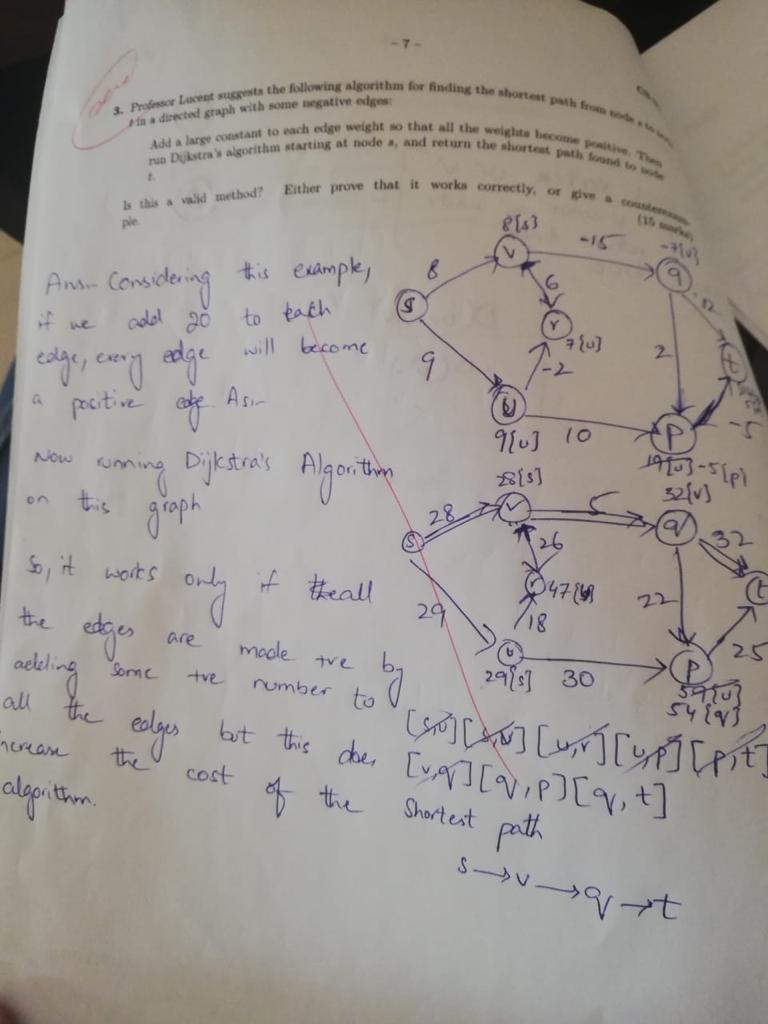 - 7 -
3. Professor Lucent suggests the following algorithm for finding the shortest path from node s to
t in a directed graph with some negative edges:
Add a large constant to each edge weight so that all the weights become positive. Then
run Dijkstra's algorithm starting at node s, and return the shortest path found to node
t.
Is this a valid method? Either prove that it works correctly, or give a
ple.
(15 marks)
Ans:- Considering this example,
if we add 20 to each
edge, every edge will become
a positive edge. As:-
Now running Dijkstra's Algorithm
on this graph
So, it works only if all
the edges are made +ve by
adding some +ve number to
all the edges but this does
increase the cost of the shortest path
algorithm.
8[s]
8
v
-15
-7[v]
q
s
6
r
7[u]
2
t
9
-2
u
9[u]
10
p
-5
-5[p]
28[s]
32[v]
28
v
5
q
32
s
26
r
47
22
t
29
18
u
29[s]
30
p
25
59[u]
54[q]
[s,v] [s,u] [u,r] [u,p] [p,t]
[v,q] [q,p] [q,t]
s → v → q → t